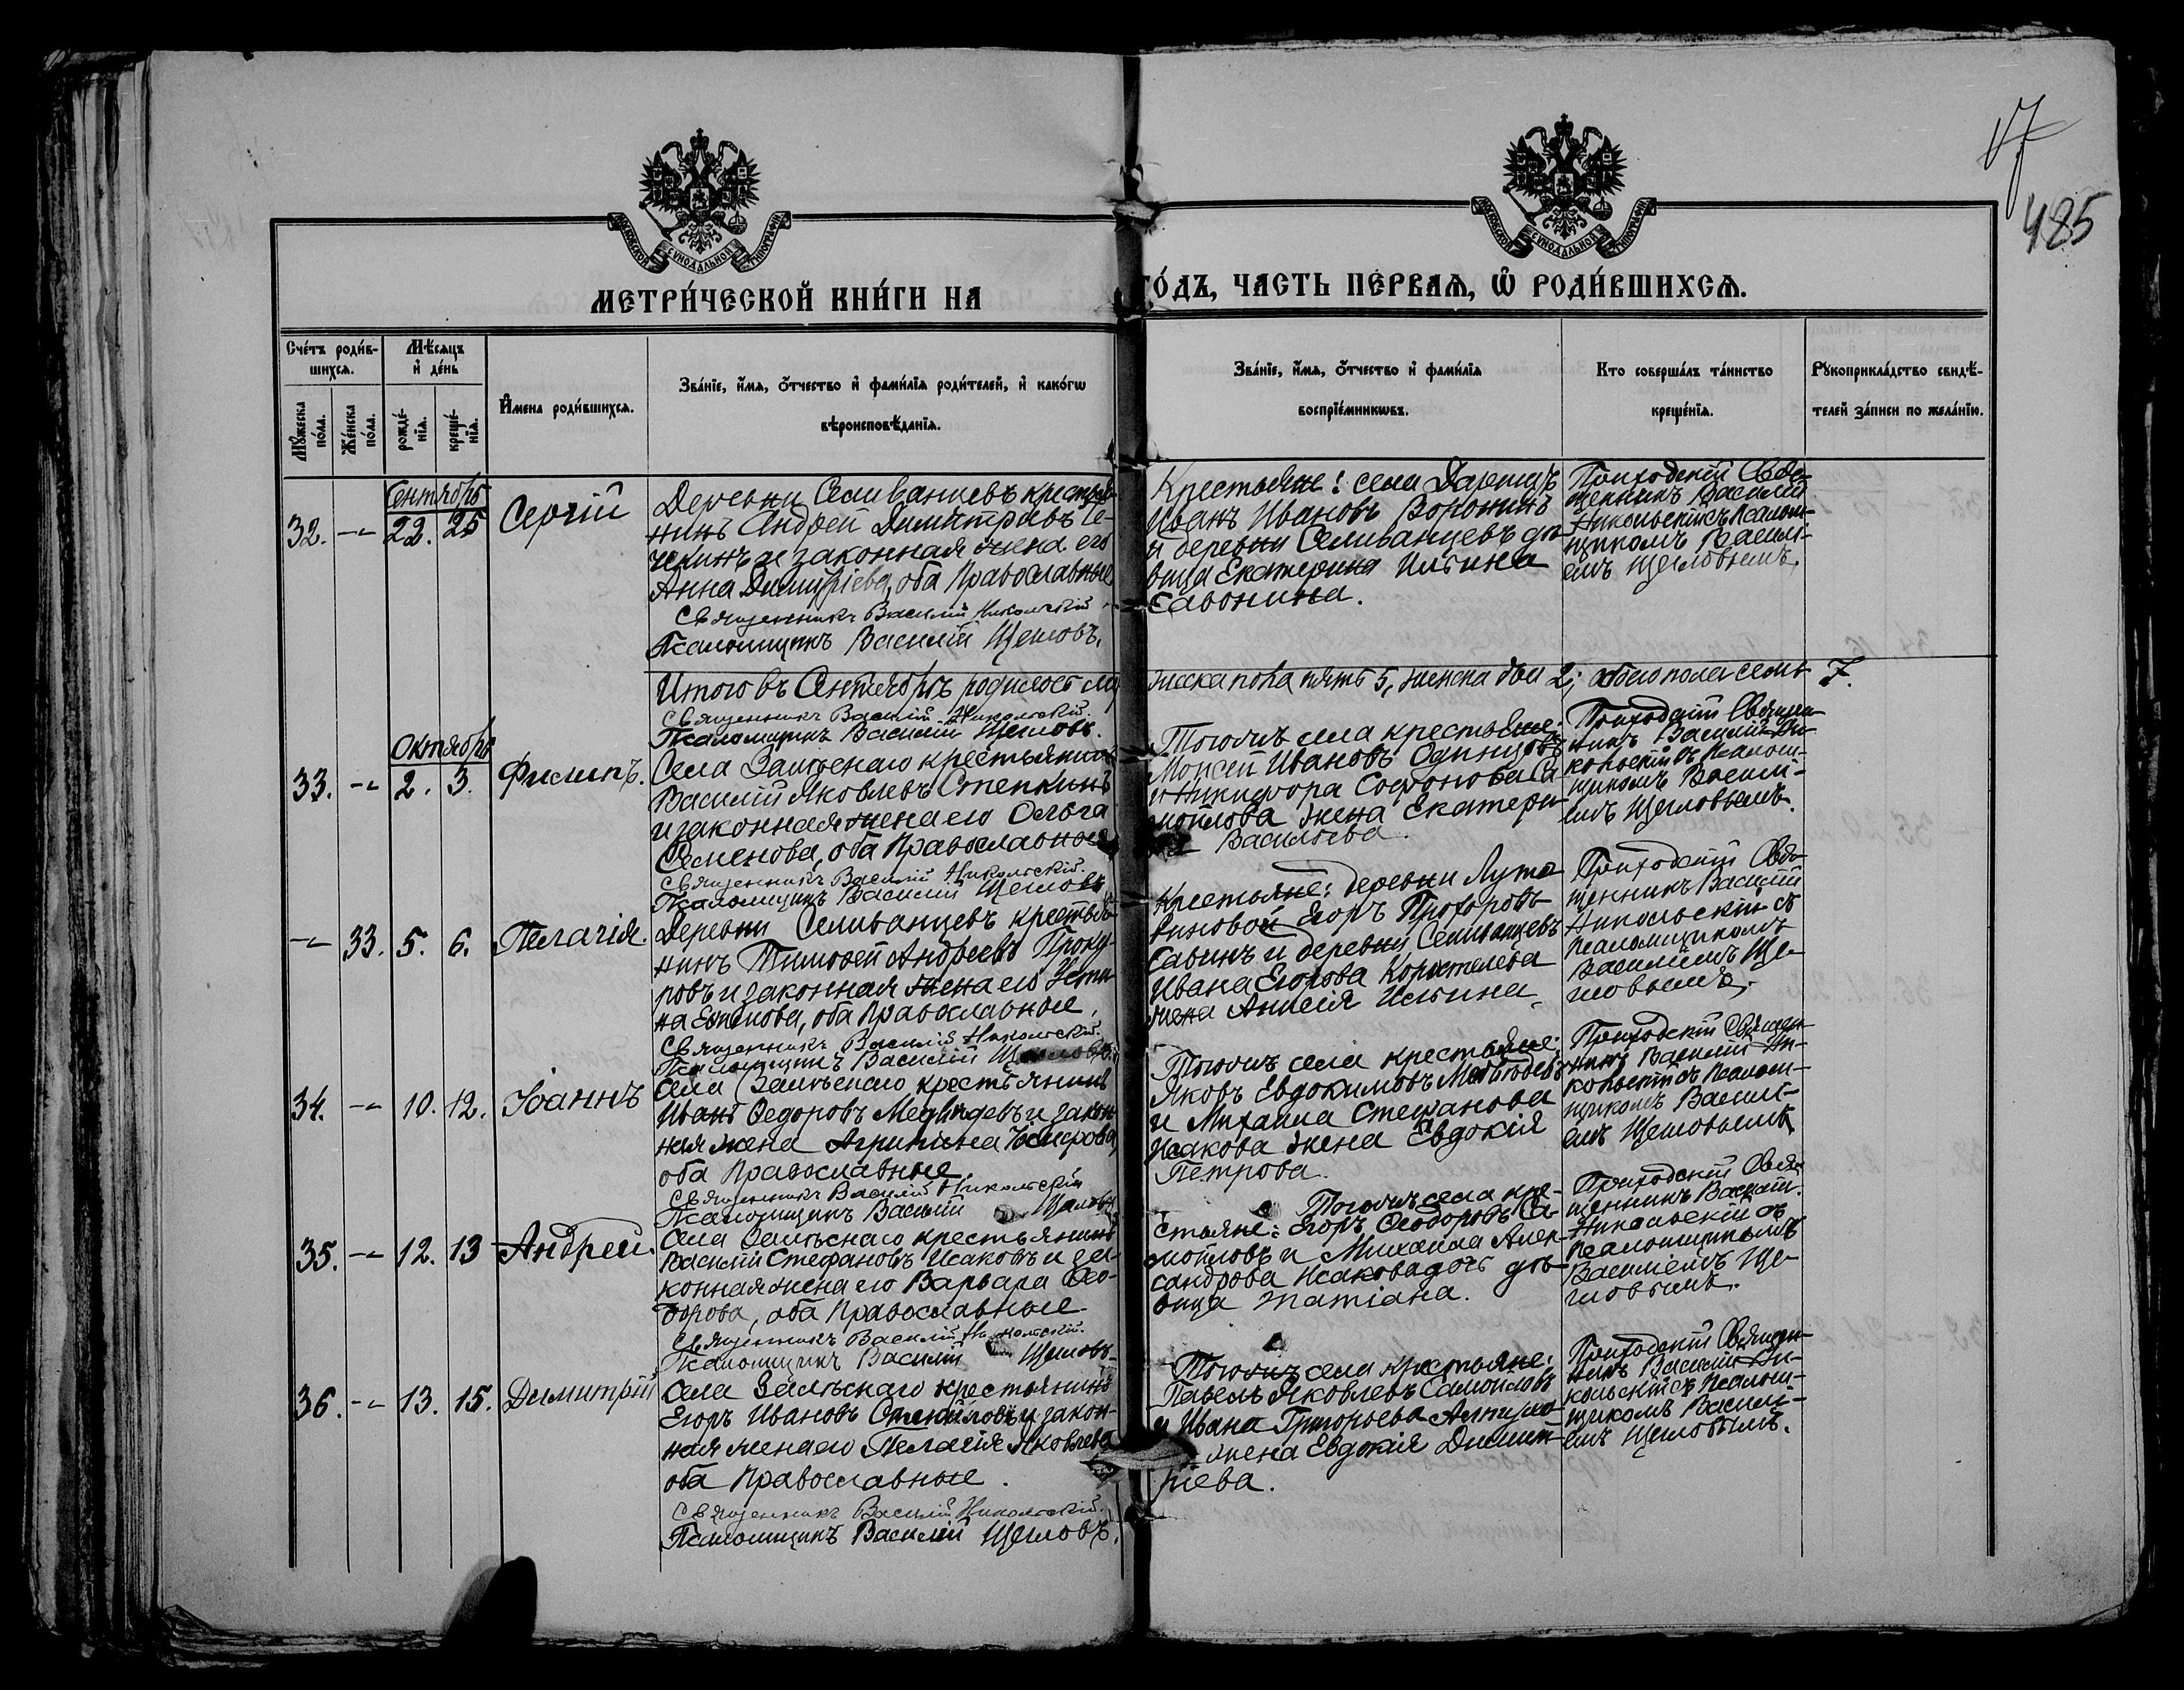 17
485
МОСКОВСКОЙ СѴНОДАЛЬНОЙ ТИПОГРАФІИ
МОСКОВСКОЙ СѴНОДАЛЬНОЙ ТИПОГРАФІИ
МЕТРИ́ЧЕСКОЙ КНИ́ГИ НА ГО́ДЪ, ЧАСТЬ ПЕ́РВАѦ, Ѽ РОДИ́ВШИХСѦ.
Сче́тъ роди́в-
шихсѧ.
Мꙋ́жеска по́ла.
Же́нска по́ла.
Мѣ́сѧцъ
и҆ де́нь
рожде́-
нїѧ.
креще́-
нїѧ.
И҆́мена роди́вшихсѧ.
Зва́нїе, и҆́мѧ, ѻ҆́тчество и҆ фами́лїѧ роди́телей, и҆ како́гѡ
вѣроисповѣ́данїѧ.
Зва́нїе, и҆́мѧ, ѻ҆́тчество и҆ фами́лїѧ
воспрїе́мникѡвъ.
Кто соверша́лъ та́инство
креще́нїѧ.
Рꙋкоприкла́дство свидѣ́-
телей за́писи по жела́нїю.
Сентябрь
32. -"- 22. 25 Сергій
Деревни Селиванцевъ крестья-
нинъ Андрей Димитріевъ Че-
чкинъ и законная жена его
Анна Димитріева, оба Православные
Священникъ Василій Никольскій
Псаломщикъ Василій Щегловъ.
Крестьяне: села Дарищъ
Иванъ Ивановъ Воронинъ
и деревни Селиванцевъ дѣ-
вица Екатерина Ильина
Савонина.
Приходскій Свя-
щенникъ Василій
Никольскій съ псалом-
щикомъ Василі-
емъ Щегловымъ.
Итого въ Сентябрѣ родилось му
жеска пола пять 5, женска два 2; обоего пола семь 7.
Священникъ Василій Никольскій.
Псаломщикъ Василій Щегловъ.
Октябрь
33. -"- 2. 3. Филиппъ.
Села крестьянинъ
Василій Яковлевъ Степкинъ
и законная жена его Ольга
Семенова, оба Православные
Священникъ Василій Никольскій.
Псаломщикъ Василій Щегловъ
Тогожъ села крестьяне:
Моисей Ивановъ Одинцовъ
и Никифора Софонова Са
мойлова жена Екатери
Васильева.
Приходскій Священ-
никъ Василій Ни-
кольскій съ псалом-
щикомъ Василі-
емъ Щегловымъ.
-"- 33. 5. 6. Пелагія.
Деревни Селиванцевъ крестья-
нинъ Тимоѳей Андреевъ Проку-
ровъ и законная жена его Усти-
на оба Православные.
Священникъ Василій Никольскій.
Псаломщикъ Василій Щегловъ.
Крестьяне: деревни Лута
Егоръ Прохоровъ
Савинъ и деревни Селиванцевъ
Ивана Егорова Коростелева
жена Анисія Ильина.
Приходскій Свя-
щенникъ Василій
Никольскій съ
псаломщикомъ
Василіемъ Ще-
гловымъ.
34. -"- 10. 12. Іоаннъ
Села крестьянинъ
Иванъ Ѳедоровъ и закон-
ная жена Агрипина
оба Православные.
Священникъ Василій Никольскій
Псаломщикъ Василій Щегловъ
Тогожъ села крестьяне:
Яковъ Евдокимовъ
и Михаила Стефанова
Исакова жена Евдокія
Петрова.
Приходскій Священ-
никъ Василій Ни-
кольскій съ псалом-
щикомъ Василі-
емъ Щегловымъ
35. -"- 12. 13 Андрей.
Села крестьянинъ
Василій Стефановъ Исаковъ и за-
конная жена его Варвара Ѳео-
дорова, оба Православные.
Священникъ Василій Никольскій.
Псаломщикъ Василій Щегловъ.
Тогожъ села кре-
стьяне: Егоръ Ѳеодоровъ Са-
мойловъ и Михаила Алек-
сандрова Исакова дочь дѣ-
вица Татіана.
Приходскій Свя-
щенникъ Василій
Никольскій съ
псаломщикомъ
Василіемъ Ще-
гловымъ.
36. -"- 13. 15. Димитрій
Села крестьянинъ
Егоръ Ивановъ и закон-
ная жена его Пелагія Яковлева
оба Православные.
Священникъ Василій Никольскій.
Псаломщикъ Василій Щегловъ.
Тогожъ села крестьяне:
Павелъ Яковлевъ Самойловъ
и Ивана Григорьева
жена Евдокія Димит-
ріева.
Приходскій Священ-
никъ Василій Ни-
кольскій съ псалом-
щикомъ Василі-
емъ Щегловымъ.